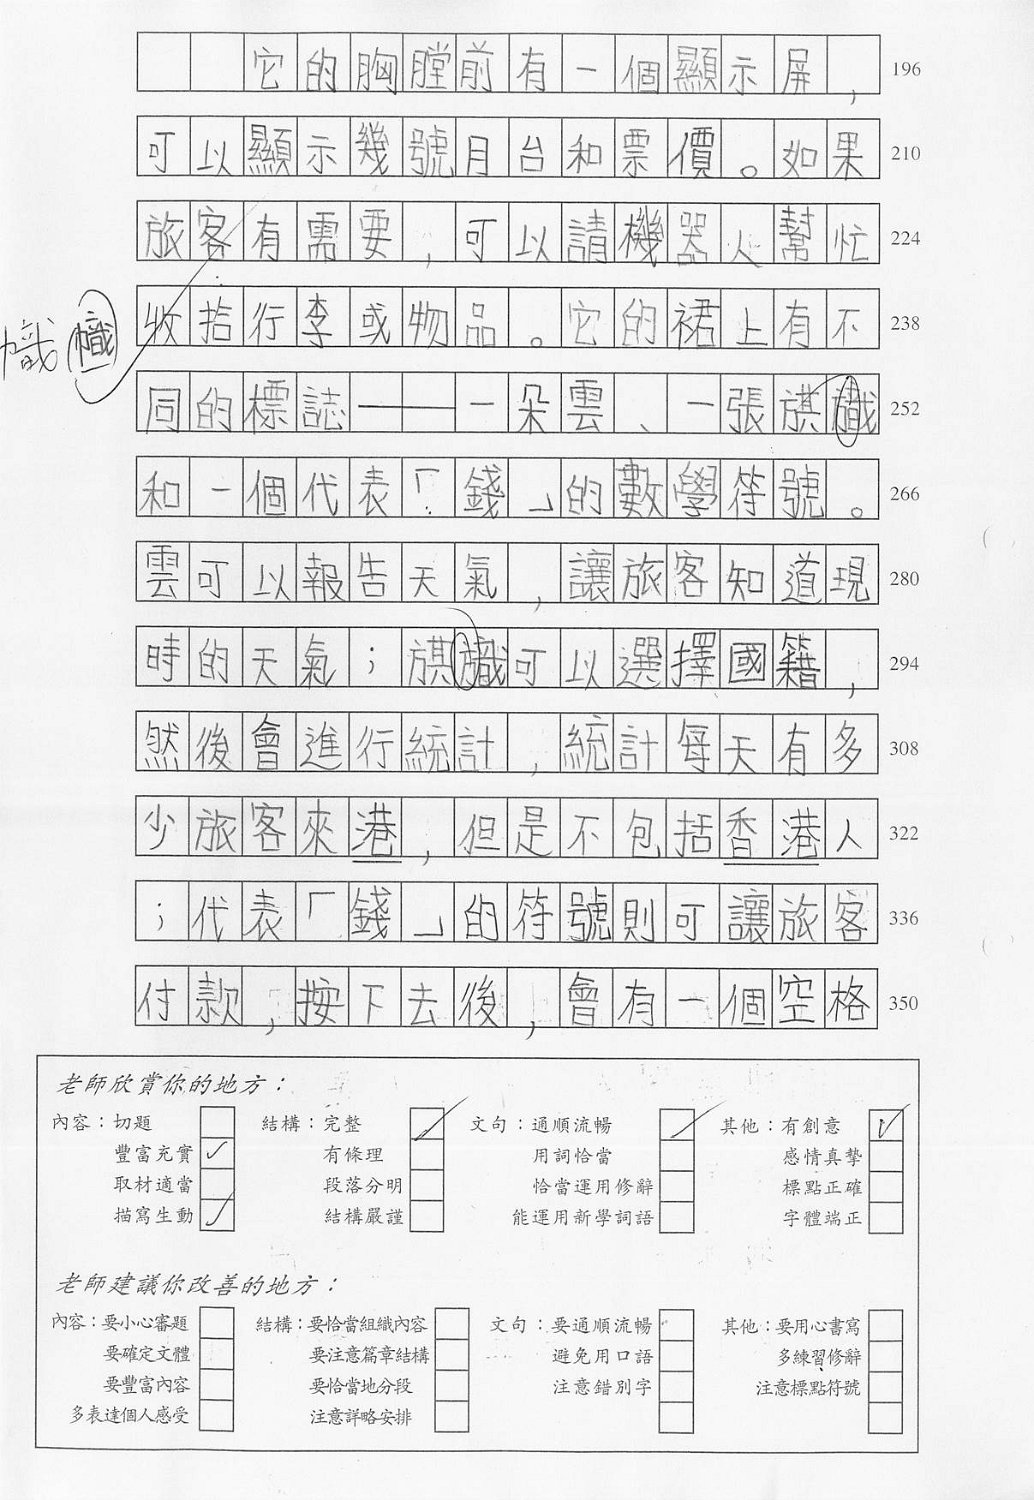 它的胸膛前有一個顯示屏， 196
可以顯示幾號月台和票價。如果 210
旅客有需要，可以請機器人幫忙 224
收拾行李或物品。它的裙上有不 238
幟 幟
同的標誌——一朵雲、一張旗 252
和一個代表「錢」的數學符號。 266
雲可以報告天氣，讓旅客知道現 280
時的天氣；旗可以選擇國籍， 294
然後會進行統計，統計每天有多 308
少旅客來港，但是不包括香港人 322
；代表「錢」的符號則可讓旅客 336
付款，按下去後，會有一個空格 350
老師欣賞你的地方：
內容：切題 結構：完整 文句：通順流暢 其他：有創意
豐富充實 有條理 用詞恰當 感情真摯
取材適當 段落分明 恰當運用修辭 標點正確
描寫生動 結構嚴謹 能運用新學詞語 字體端正
老師建議你改善的地方：
內容：要小心審題 結構：要恰當組織內容 文句：要通順流暢 其他：要用心書寫
要確定文體 要注意篇章結構 避免用口語 多練習修辭
要豐富內容 要恰當地分段 注意錯別字 注意標點符號
多表達個人感受 注意詳略安排